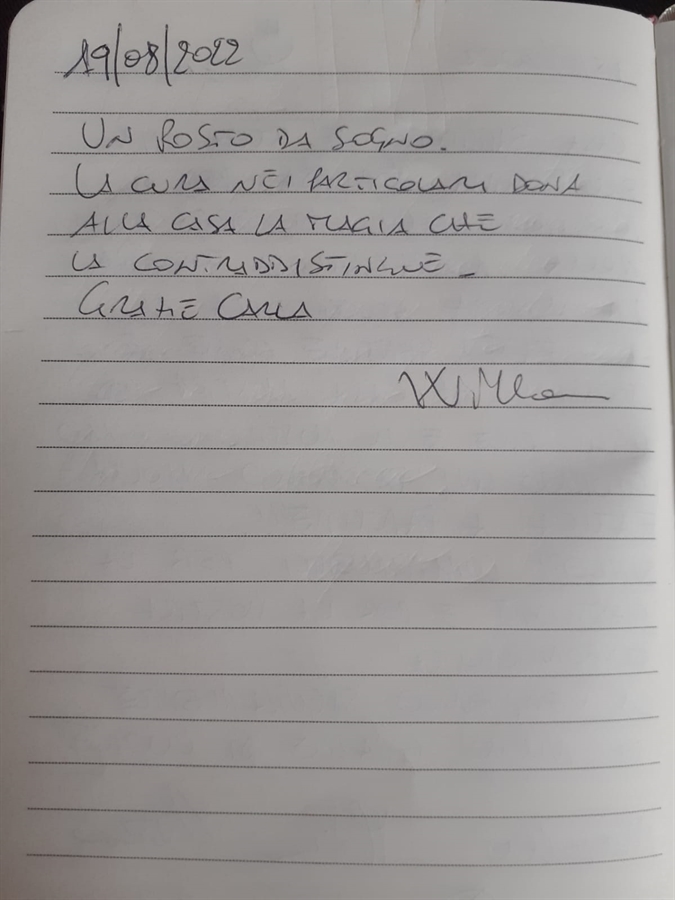 19/08/2022
UN POSTO DA SOGNO.
LA CURA NEI PARTICOLARI DONA
ALLA CASA LA MAGIA CHE
LA CONTRADDISTINGUE.
GRAZIE CARLA